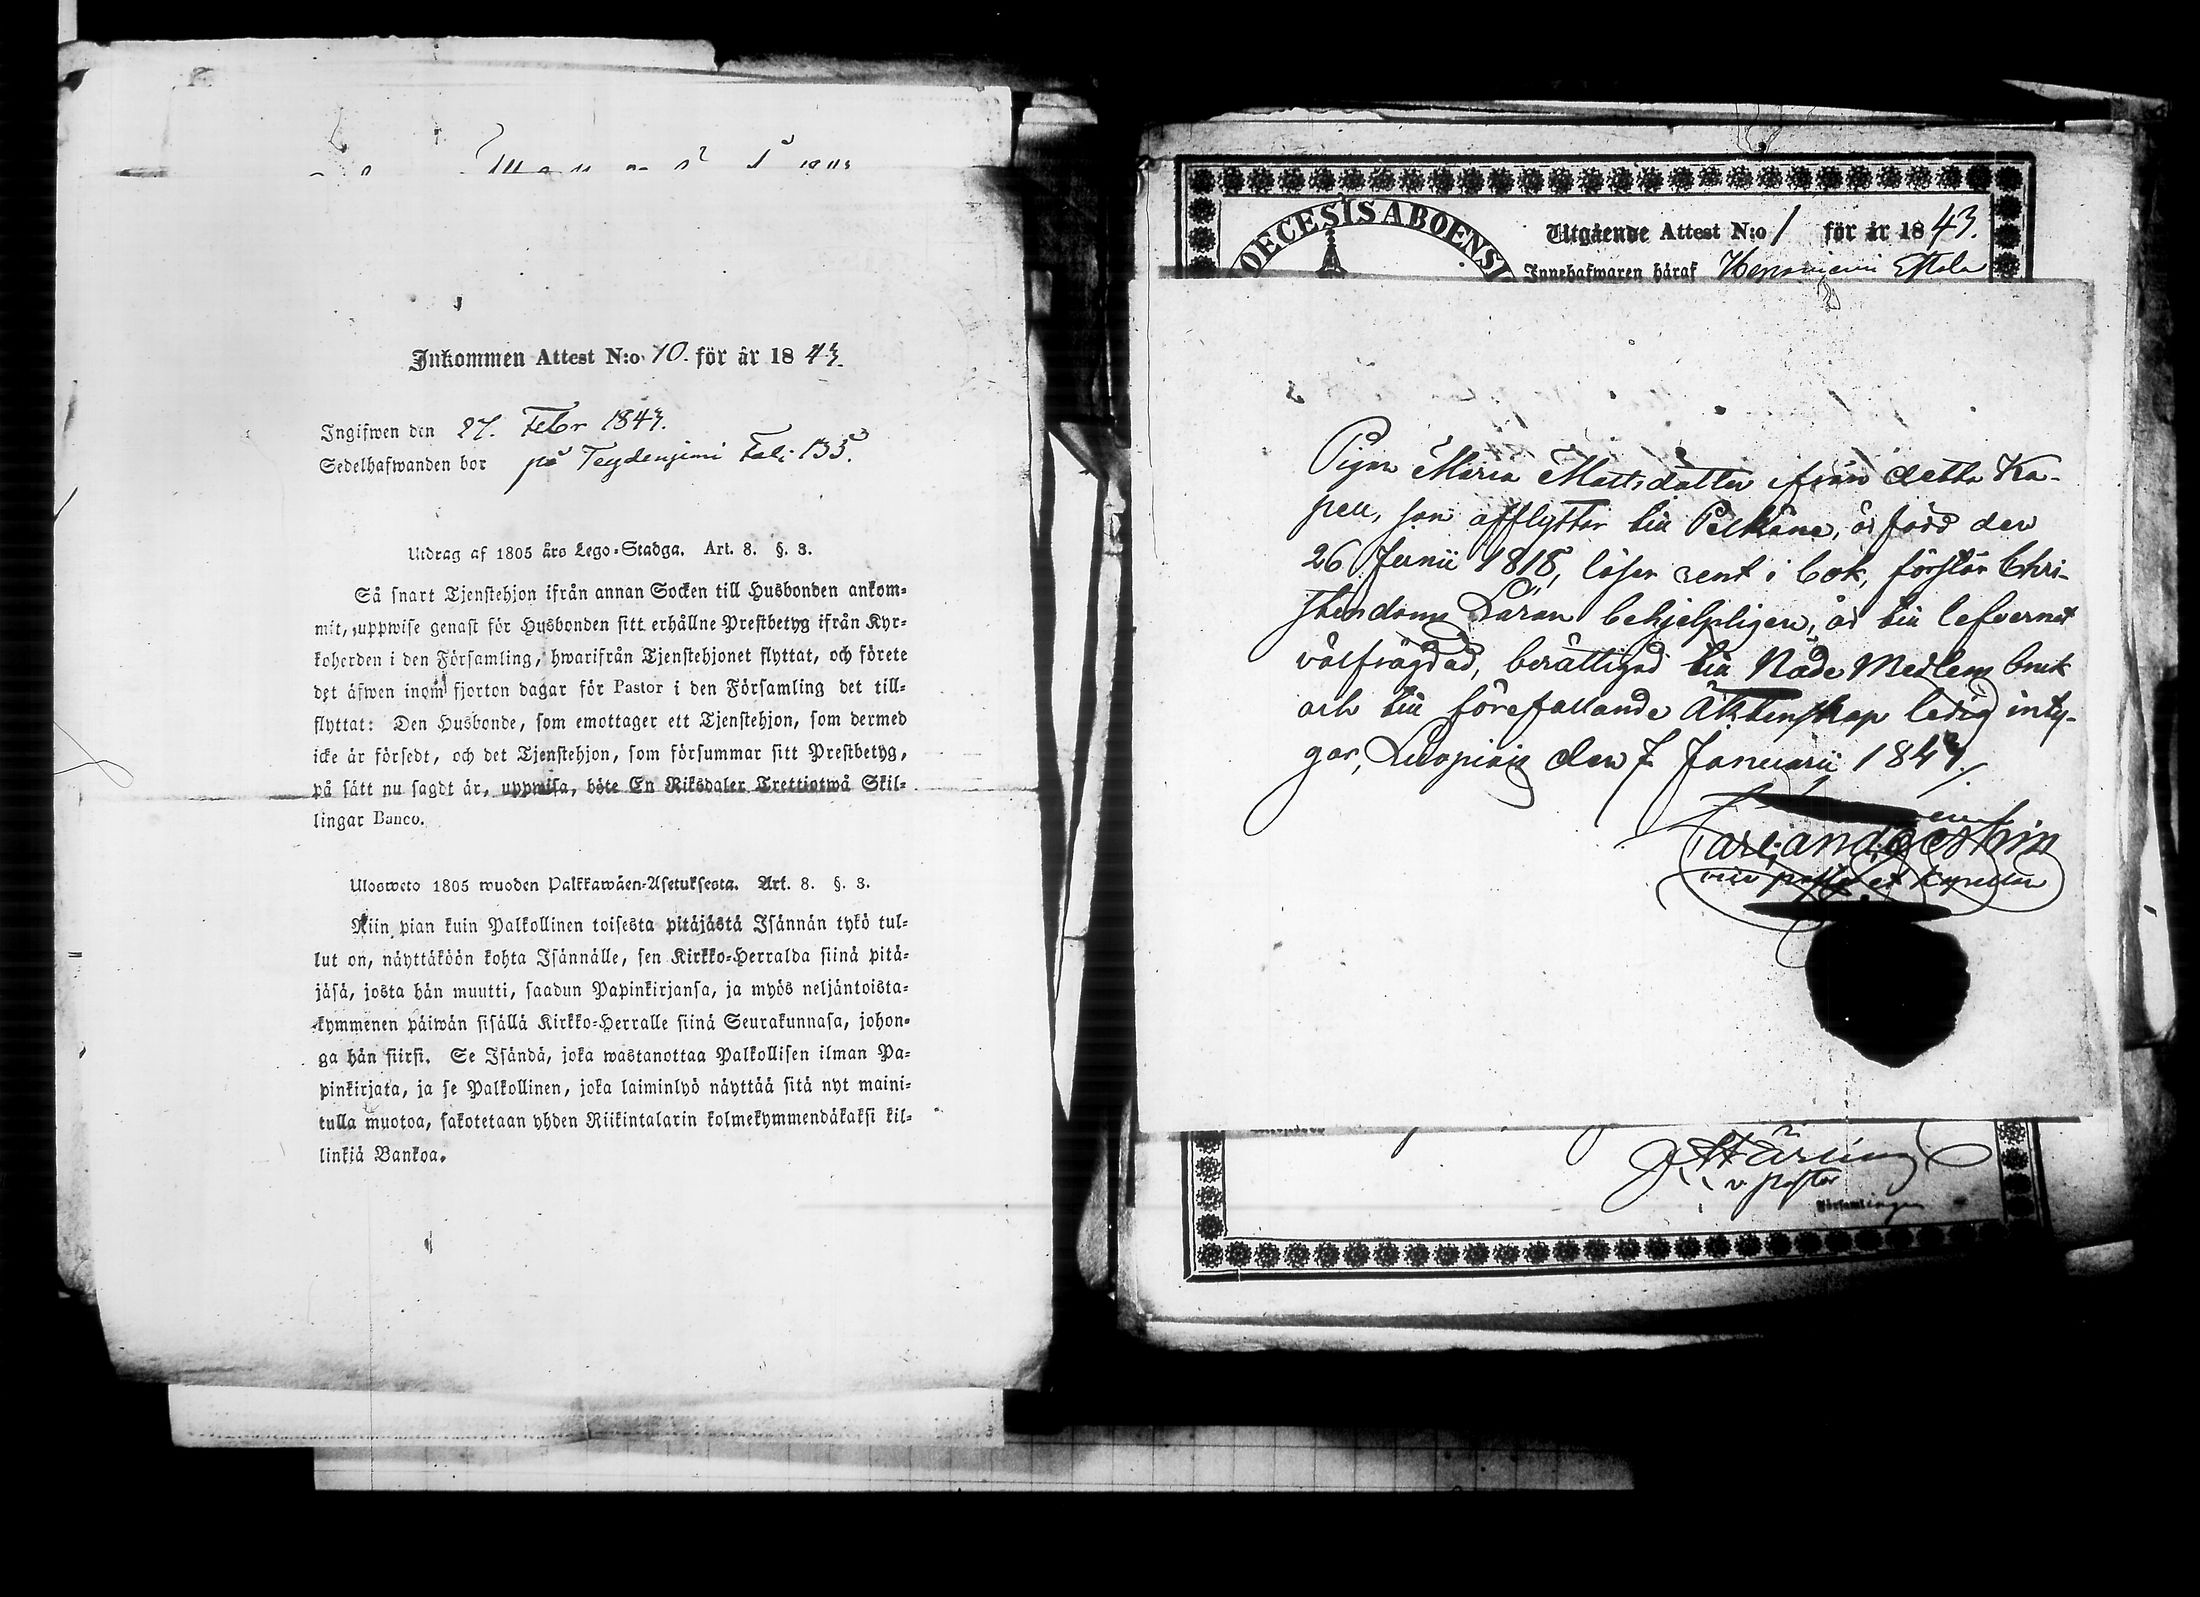 Inkommen Attest N:o 10. för år 1843.
Ingifwen den 27. Febr 1843.
Sedelhafwanden bor på Fol: 133.
Utdrag af 1805 års Lego-Stadga. Art. 8. §. 3.
Så snart Tjenstehjon ifrån annan Socken till Husbonden ankom-
mit, uppwise genast för Husbonden sitt erhållne Prestbetyg ifrån Kyr-
koherden i den Församling, hwarifrån Tjenstehjonet flyttat, och förete
det äfwen inom fjorton dagar för Pastor i den Församling det till-
flyttat: Den Husbonde, som emottager ett Tjenstehjon, som dermed
icke är försedt, och det Tjenstehjon, som försummar sitt Prestbetyg,
på sätt nu sagdt är, uppwisa, böte En Riksdaler Trettiotwå Skil-
lingar Banco.
Ulosweto 1805 wuoden Palkkawäen-Asetuksesta. Art. 8. §. 3.
Niin pian kuin Palkollinen toisesta pitäjästä Isännän tykö tul-
lut on, näyttäköön kohta Isännälle, sen Kirkko-Herralda siinä pitä-
jäsä, josta hän muutti, saadun Papinkirjansa, ja myös neljäntoista-
kymmenen päiwän sisällä Kirkko-Herralle siinä Seurakunnasa, johon-
ga hän siirsi. Se Isändä, joka wastanottaa Palkollisen ilman Pa-
pinkirjata, ja se Palkollinen, joka laiminlyö näyttää sitä nyt maini-
tulla muotoa, sakotetaan yhden Riikintalarin kolmekymmendäkaksi kil-
linkiä Bankoa.
DIOECESIS ABOENSI
Utgående Attest N:o 1 för år 1843.
Innehafwaren häraf
Pigan Maria Mattsdotter ifrån detta Ka-
pell, som afflyttar till Pelkäne, är född den
26 Junii 1818, läser rent i bok, förstår Chri-
stendoms Läran behjelpligen, är till lefvernet
välfrägdad, berättigad till Nåde Medlens bruk
och till förefallande Äktenskap ledig inty-
gar, Luopiois den 7 Januarii 1843.
v pastor
Församlingen